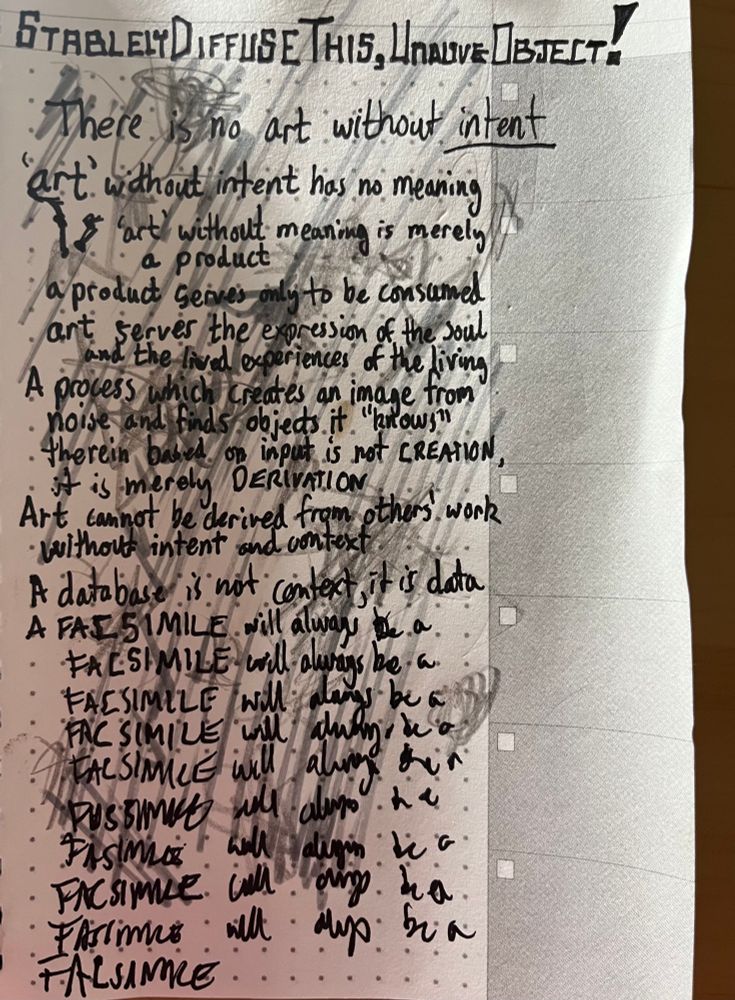 STABLELY DIFFUSE THIS, UNALIVE OBJECT!
There is no art without intent
'art' without intent has no meaning
'art' without meaning is merely
a product
a product serves only to be consumed
art serves the expression of the soul
and the lived experiences of the living
A process which creates an image from
noise and finds objects it "knows"
therein based on input is not CREATION,
it is merely DERIVATION
Art cannot be derived from others' work
without intent and context
A database is not context, it is data
A FACSIMILE will always be a
FACSIMILE will always be a
FACSIMILE will always be a
FACSIMILE will always be a
FACSIMILE will always be a
will be a
FASIMILE will be a
FACSIMILE will be a
FASIMILE will be a
FALSIMILE